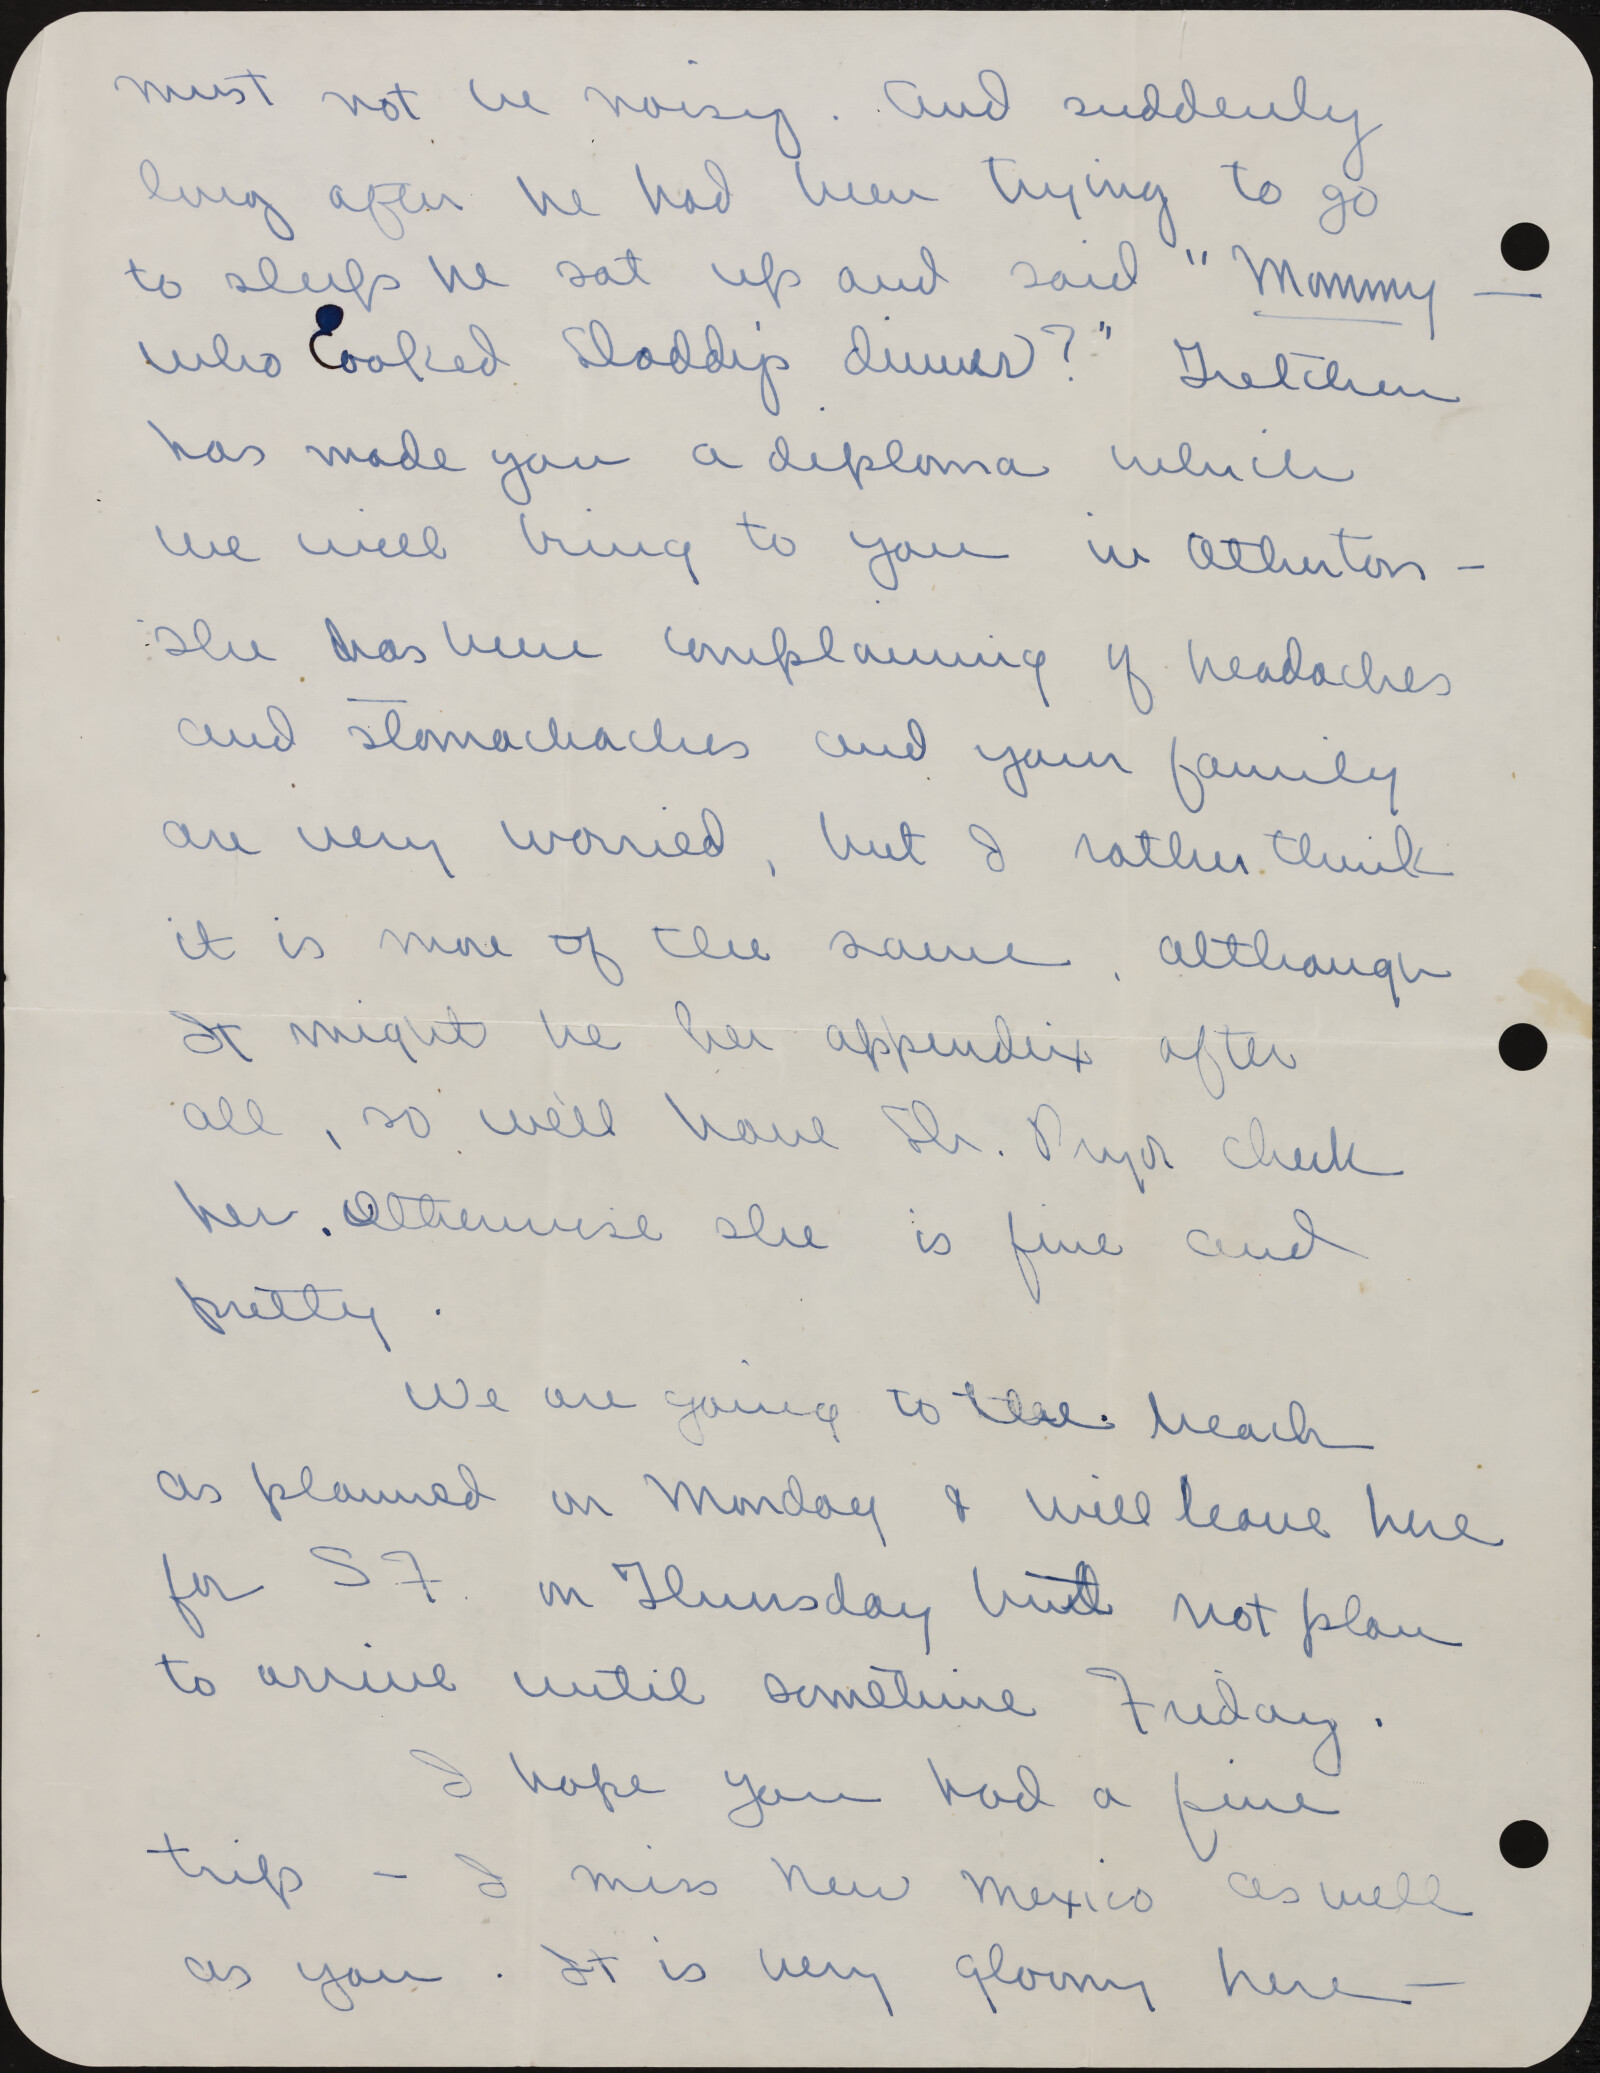 must not be noisy. And suddenly
long after he had been trying to go
to sleep he sat up and said "Mommy —
who cooked Daddy's dinner?" Gretchen
has made you a diploma which
we will bring to you in Atherton -
she has been complaining of headaches
and stomachaches and your family
are very worried, but I rather think
it is more of the same, although
It might be her appendix after
all, so we'll have Dr. Pryor check
her. Otherwise she is fine and
pretty.
We are going to the beach
as planned on Monday & will leave here
for SF on Thursday but not plan
to arrive until sometime Friday.
I hope you had a fine
trip - I miss New Mexico as well
as you. It is very gloomy here —